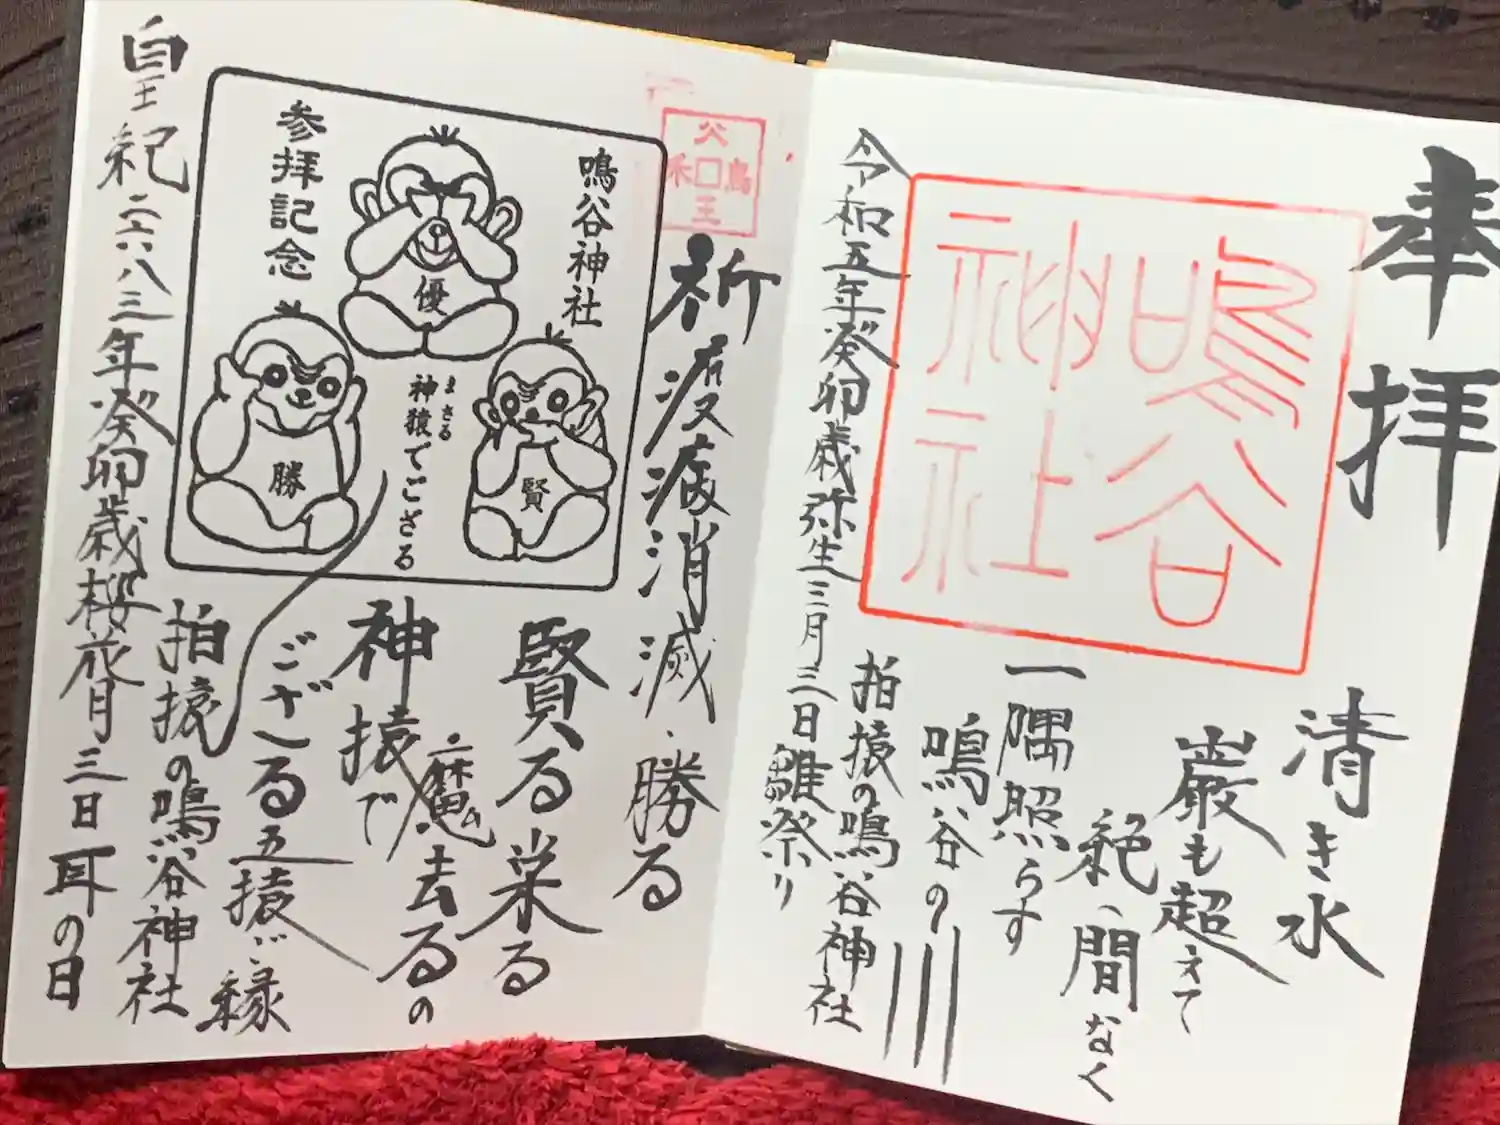 奉拝
鳴谷
神社
清き水
巌も超えて
絶え間なく
一隅照らす
鳴谷の川
拍猿の鳴谷神社
令和五年癸卯歳弥生三月三日雛祭り
祈疫病消滅・勝る
賢る栄る
・魔去るの
神猿で
ござる五猿ご縁
拍猿の鳴谷神社
皇紀二六八三年癸卯歳桜花月三日耳の日
鳴谷神社
参拝記念
優
勝
賢
まさる
神猿でござる